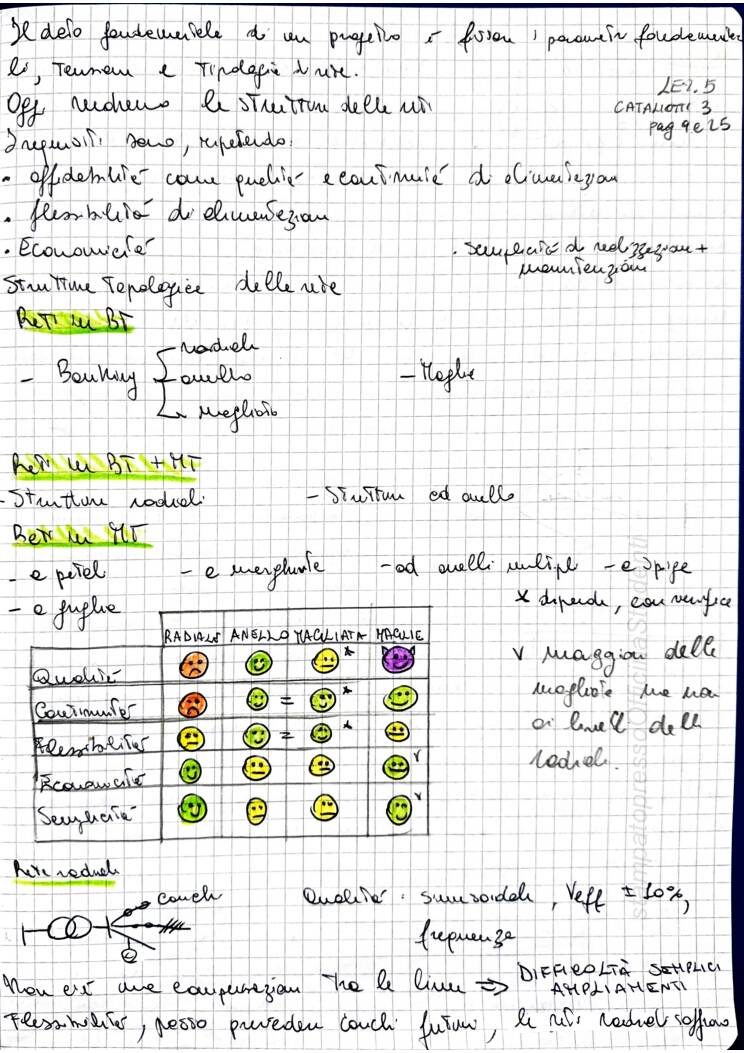 Il dato fondamentale di un progetto è fissare i parametri fondamenta-
li, Tensione e Tipologia di rete.
Oggi vediamo le strutture delle reti
I requisiti sono, ripetendo:
LEZ. 5
CATALIOTTI 3
pag 9 e 25
• affidabilità come qualità e continuità di alimentazione
• flessibilità di alimentazione
• Economicità
• semplicità di realizzazione +
manutenzione
Strutture Topologice delle rete
Reti in BT
- Banking
radiale
anello
magliato
- Maglie
Reti in BT + MT
- Strutture radiali
- Strutture ad anello
Reti in MT
- a petali - a margherite - ad anelli multipli - a spiga
- a griglia
* dipende, con verifica
RADIALE ANELLO MAGLIATA MAGLIE
Qualità *
Continuità = *
Flessibilità = *
Economicità v
Semplicità v
v maggiori delle
magliate ma non
ai livelli delle
radiali.
Rete radiale
carichi
Qualità: sinusoidale, Veff ± 10%,
frequenza
Non c'è una compensazione tra le linee ⇒ DIFFICOLTÀ SEMPLICI
AMPLIAMENTI
Flessibilità, posso prevedere carichi futuri, le reti radiali soffrono